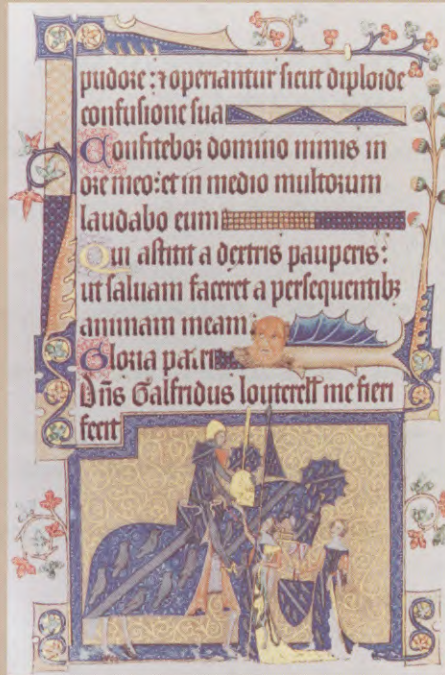 pudore : ⁊ operiantur sicut diploide
confusione sua
Confitebor domino nimis in
ore meo : et in medio multorum
laudabo eum
Qui astitit a dextris pauperis :
ut saluam faceret a persequentibꝫ
animam meam
Gloria patri
Dn̄s Galfridus louterell me fieri
fecit